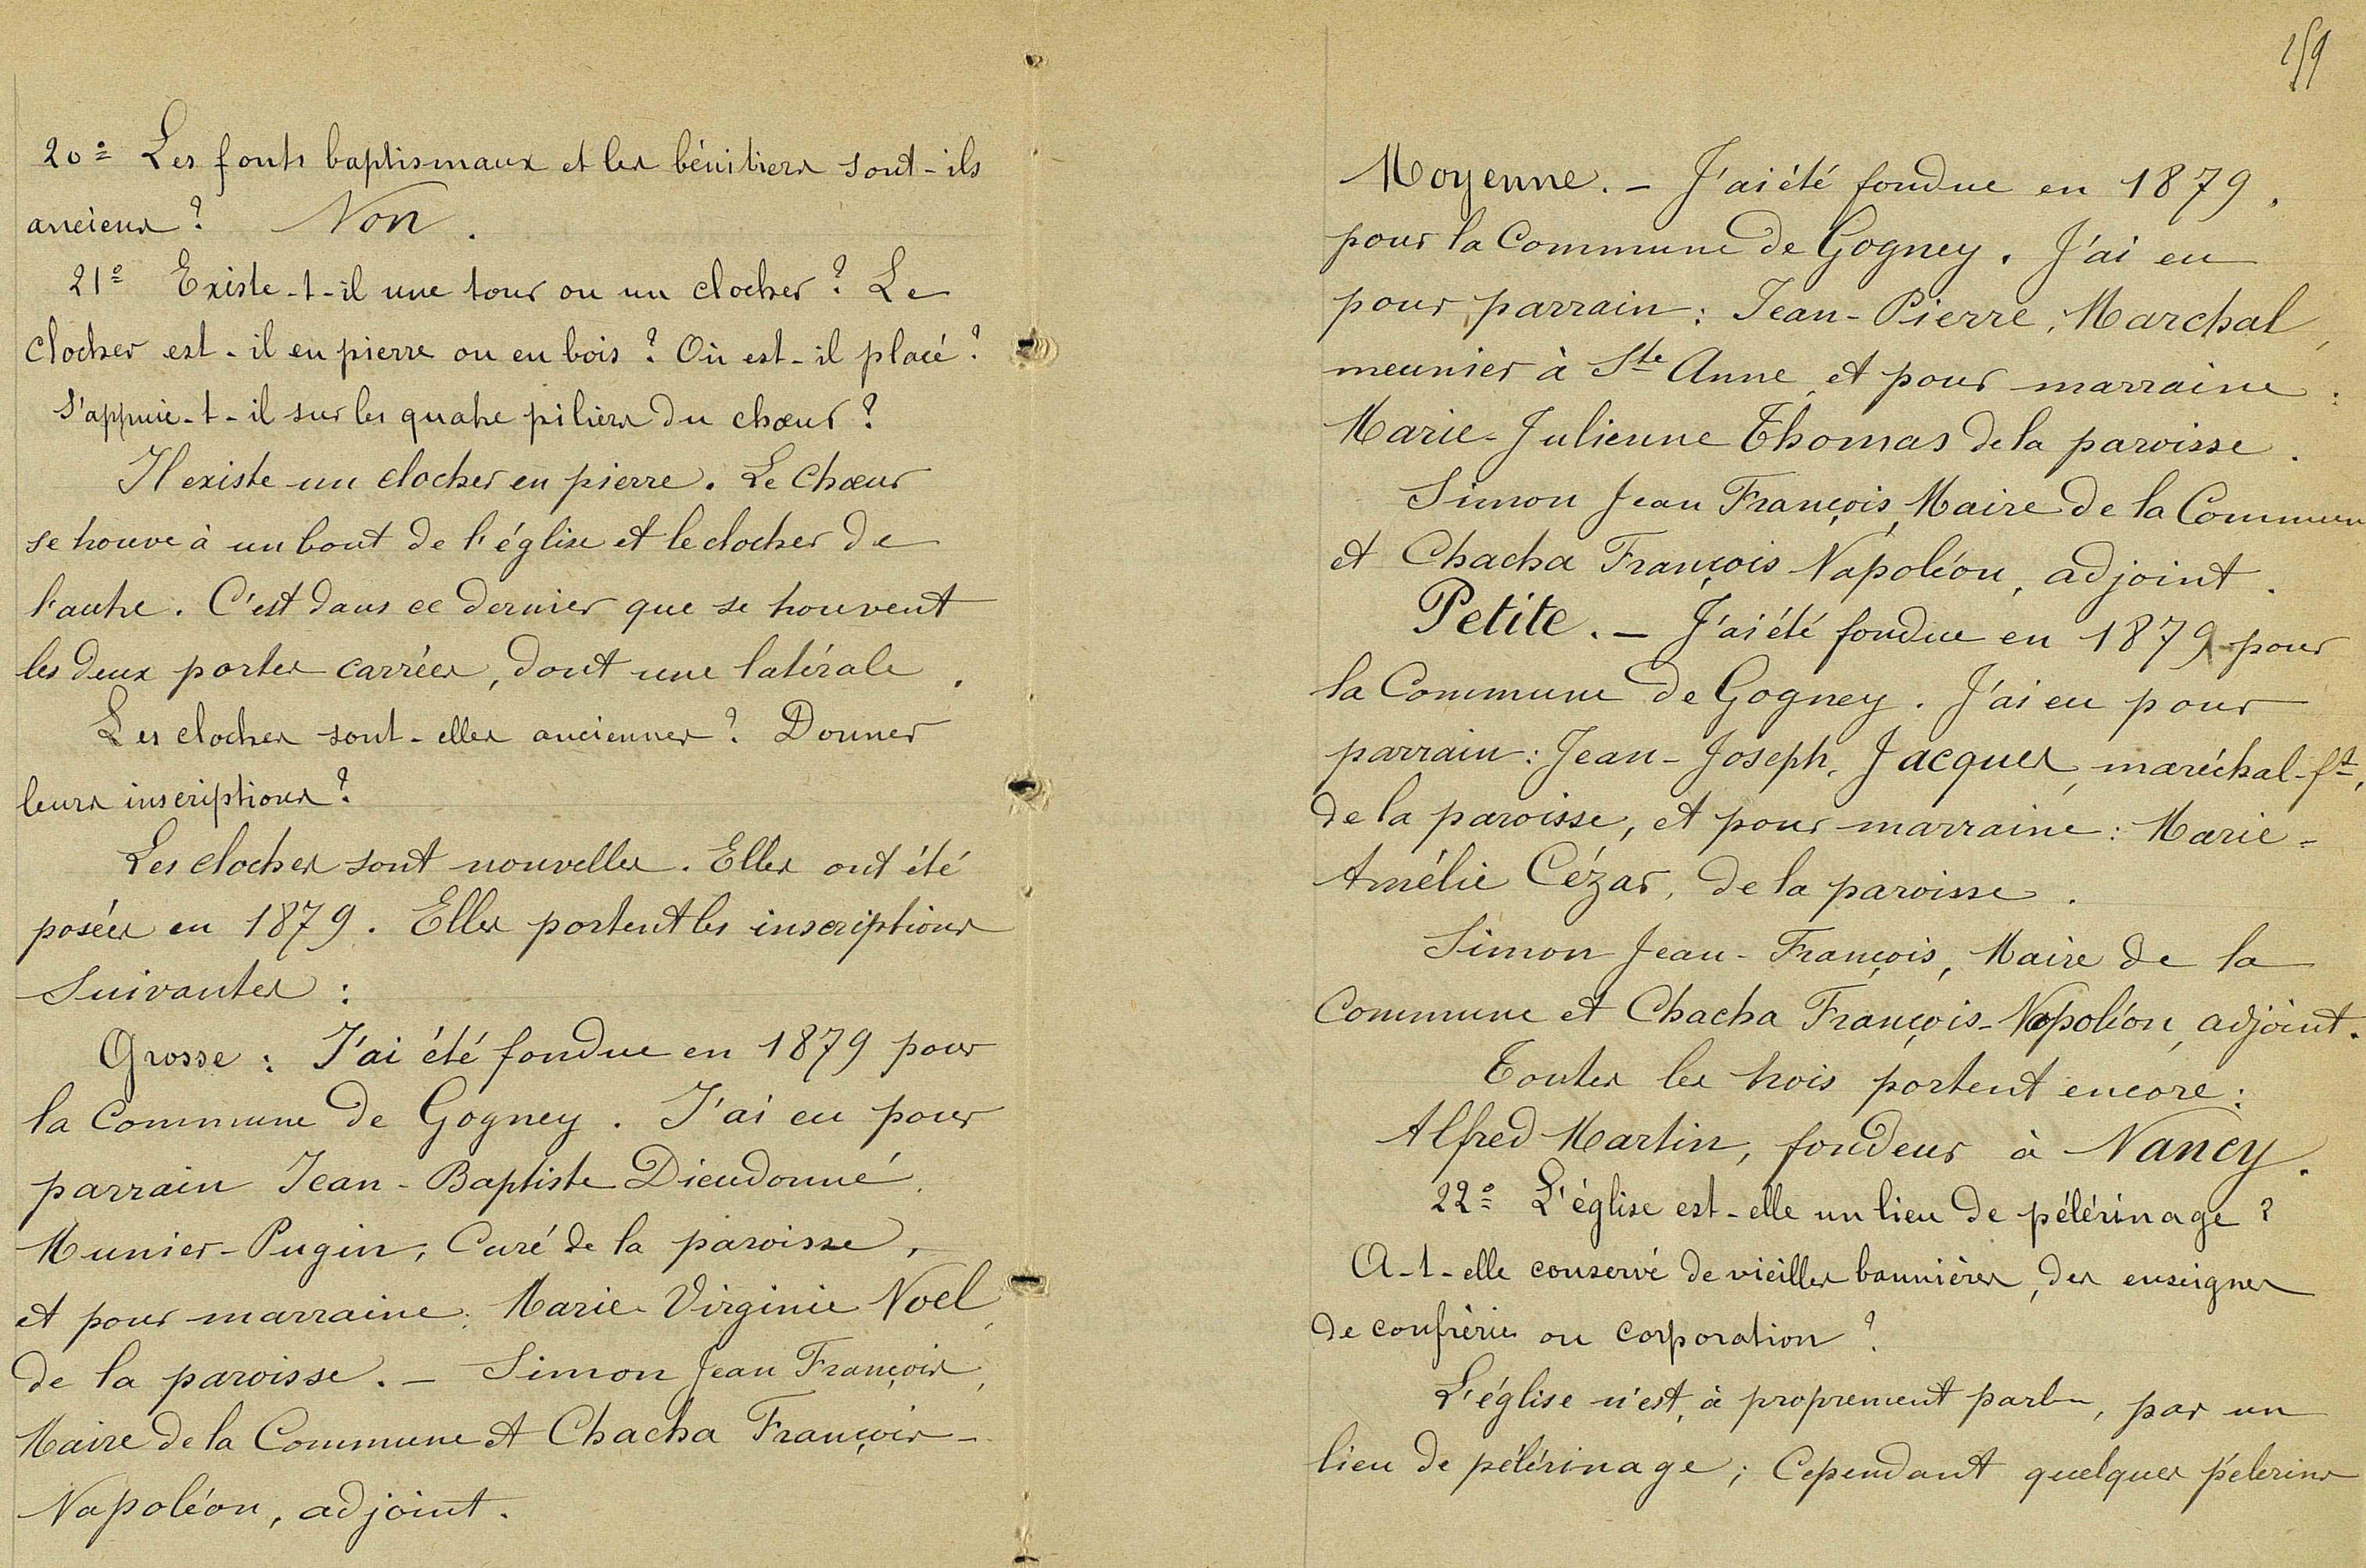 20º Les fonts baptismaux et les bénitiers sont-ils
anciens ? Non.
21º Existe-t-il une tour ou un clocher ? Le
clocher est-il en pierre ou en bois ? Où est-il placé ?
S'appuie-t-il sur les quatre piliers du chœur ?
Il existe un clocher en pierre. Le Chœur
se trouve à un bout de l'église et le clocher de
l'autre. C'est dans ce dernier que se trouvent
les deux portes carrées, dont une latérale.
Les cloches sont-elles anciennes ? Donner
leurs inscriptions ?
Les cloches sont nouvelles. Elles ont été
posées en 1879. Elles portent les inscriptions
Suivantes :
Grosse : J'ai été fondue en 1879 pour
la Commune de Gogney. J'ai eu pour
parrain Jean-Baptiste Dieudonné,
Munier-Pugin, Curé de la paroisse,
et pour marraine : Marie-Virginie Noel,
de la paroisse. — Simon Jean François,
Maire de la Commune et Chacha François-
Napoléon, adjoint.
159
Moyenne. — J'ai été fondue en 1879,
pour la Commune de Gogney. J'ai eu
pour parrain : Jean-Pierre, Marchal,
meunier à Ste Anne, et pour marraine :
Marie-Julienne Thomas de la paroisse.
Simon Jean François, Maire de la Commune
et Chacha François Napoléon, adjoint.
Petite. — J'ai été fondue en 1879 pour
la Commune de Gogney. J'ai eu pour
parrain : Jean-Joseph, Jacques, maréchal-ft,
de la paroisse, et pour marraine : Marie-
Amélie Cézar, de la paroisse.
Simon Jean-François, Maire de la
Commune et Chacha François-Napoléon, adjoint.
Toutes les trois portent encore :
Alfred Martin, fondeur à Nancy.
22º L'église est-elle un lieu de pélérinage ?
A-t-elle conservé de vieilles bannières, des enseignes
de confrérie ou corporation ?
L'église n'est, à proprement parler, pas un
lieu de pélérinage ; Cependant quelques pélerins